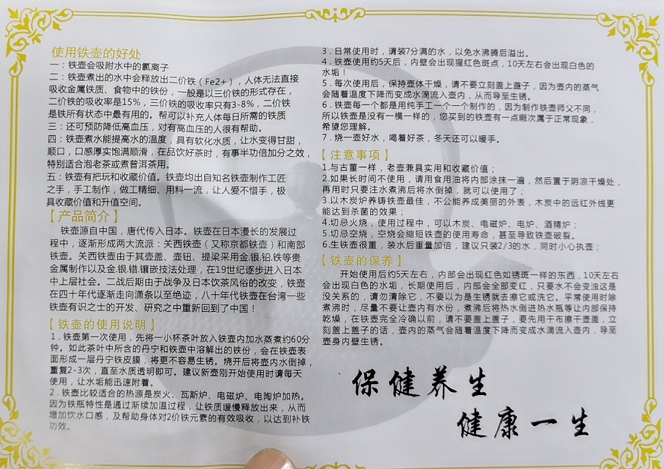 使用铁壶的好处
一：铁壶会吸附水中的氯离子
二：铁壶煮出的水中会释放出二价铁（Fe2+），人体无法直接
吸收金属铁质、食物中的铁份，一般是以三价铁的形式存在，
二价铁的吸收率是15%，三价铁的吸收率只有3-8%，二价铁
是铁所有状态中最有用的。帮可以补充人体每日所需的铁质
三：还可预防降低高血压，对有高血压的人很有帮助。
四：铁壶煮水能提高水的温度，具有软化水质，让水变得甘甜，
顺口，口感厚实饱满顺滑，在品饮好茶时，有事半功倍加分之效，
特别适合泡老茶或煮普洱茶用。
五：铁壶有把玩和收藏价值。铁壶均出自知名铁壶制作工匠
之手，手工制作，做工精细、用料一流，让人爱不惜手，极
具收藏价值和升值空间。
【产品简介】
铁壶源自中国，唐代传入日本。铁壶在日本漫长的发展过
程中，逐渐形成两大流派：关西铁壶（又称京都铁壶）和南部
铁壶。关西铁壶由于其壶盖、壶钮、提梁采用金,银,铂,铁等贵
金属制作以及金,银,错,镶嵌技法处理，在19世纪逐步进入日本
中上层社会。二战后期由于战争及日本饮茶风俗的改变，铁壶
在四十年代逐渐走向萧条以至绝迹，八十年代铁壶在台湾一些
铁壶有识之士的开发、研究之中重新回到了中国！
【铁壶的使用说明】
1．铁壶第一次使用，先将一小杯茶叶放入铁壶内加水蒸煮约60分
钟。如此茶叶中所含的丹宁和铁壶中溶解出的铁份，会在铁壶表
面形成一层丹宁铁皮膜，将更不容易生锈。烧开后将壶内水倒掉，
重复2-3次，直至水质透明即可。建议新壶刚开始使用时请每天
使用，让水垢能迅速附着。
2．铁壶比较适合的热源是炭火、瓦斯炉、电磁炉、电陶炉加热。
因为铁瓶特性是通过渐续加温过程，让铁质缓慢释放出来，从而
增加饮水口感，及帮助身体对2价铁元素的有效吸收，以达到补铁
功效。
3．日常使用时，请装7分满的水，以免水沸腾后溢出。
4．铁壶使用约5天后，内壁会出现猩红色斑点，10天左右会出现白色的
水垢！
5．每次使用后，保持壶体干燥，请不要立刻盖上盖子，因为壶内的蒸气
会随着温度下降而变成水滴流入壶内，从而导至生锈。
6．铁壶每一个都是用纯手工一个一个制作的，因为制作铁壶师父不同，
所以铁壶是没有一模一样的，您买到的铁壶有一点瑕次属于正常现象，
希望您理解。
7．烧一壶好水，喝着好茶，冬天还可以暖手。
【注意事项】
1.与古董一样，老壶兼具实用和收藏价值；
2.如果长时间不使用，请用食用油将内部涂抹一遍，然后置于阴凉干燥处，
再用时只要注水煮沸后将水倒掉，就可以使用了；
3.以木炭炉养铸铁壶最佳，不公能养成美丽的外表，木炭中的远红外线更
能达到杀菌的效果；
4.切忌火烧，使用过程中，可以木炭、电磁炉、电炉、酒精炉；
5.切忌空烧，空烧会缩短铁壶的使用寿命，甚至导致铁壶破裂。
6.生铁壶很重，装水后重量加倍，建议只装2/3的水，同时小心执壶；
【铁壶的保养】
开始使用后约5天左右，内部会出现红色如锈斑一样的东西，10天左右
会出现白色的水垢，长期使用后，内部会全部变红，只要水不会变浊这是
没关系的，请勿清除它，不要以为是生锈就去擦它或洗它。平常使用时除
煮沸时，尽量不要让壶内有水份，煮沸后将热水倒进热水瓶等让内部保持
乾燥，在铁壶完全冷确以前，请不要盖上盖子，要先用干布擦干壶盖，立
刻盖上盖子的话，壶内的蒸气会随着温度下降而变成水滴流入壶内，导至
壶身内壁生锈。
保健养生
健康一生